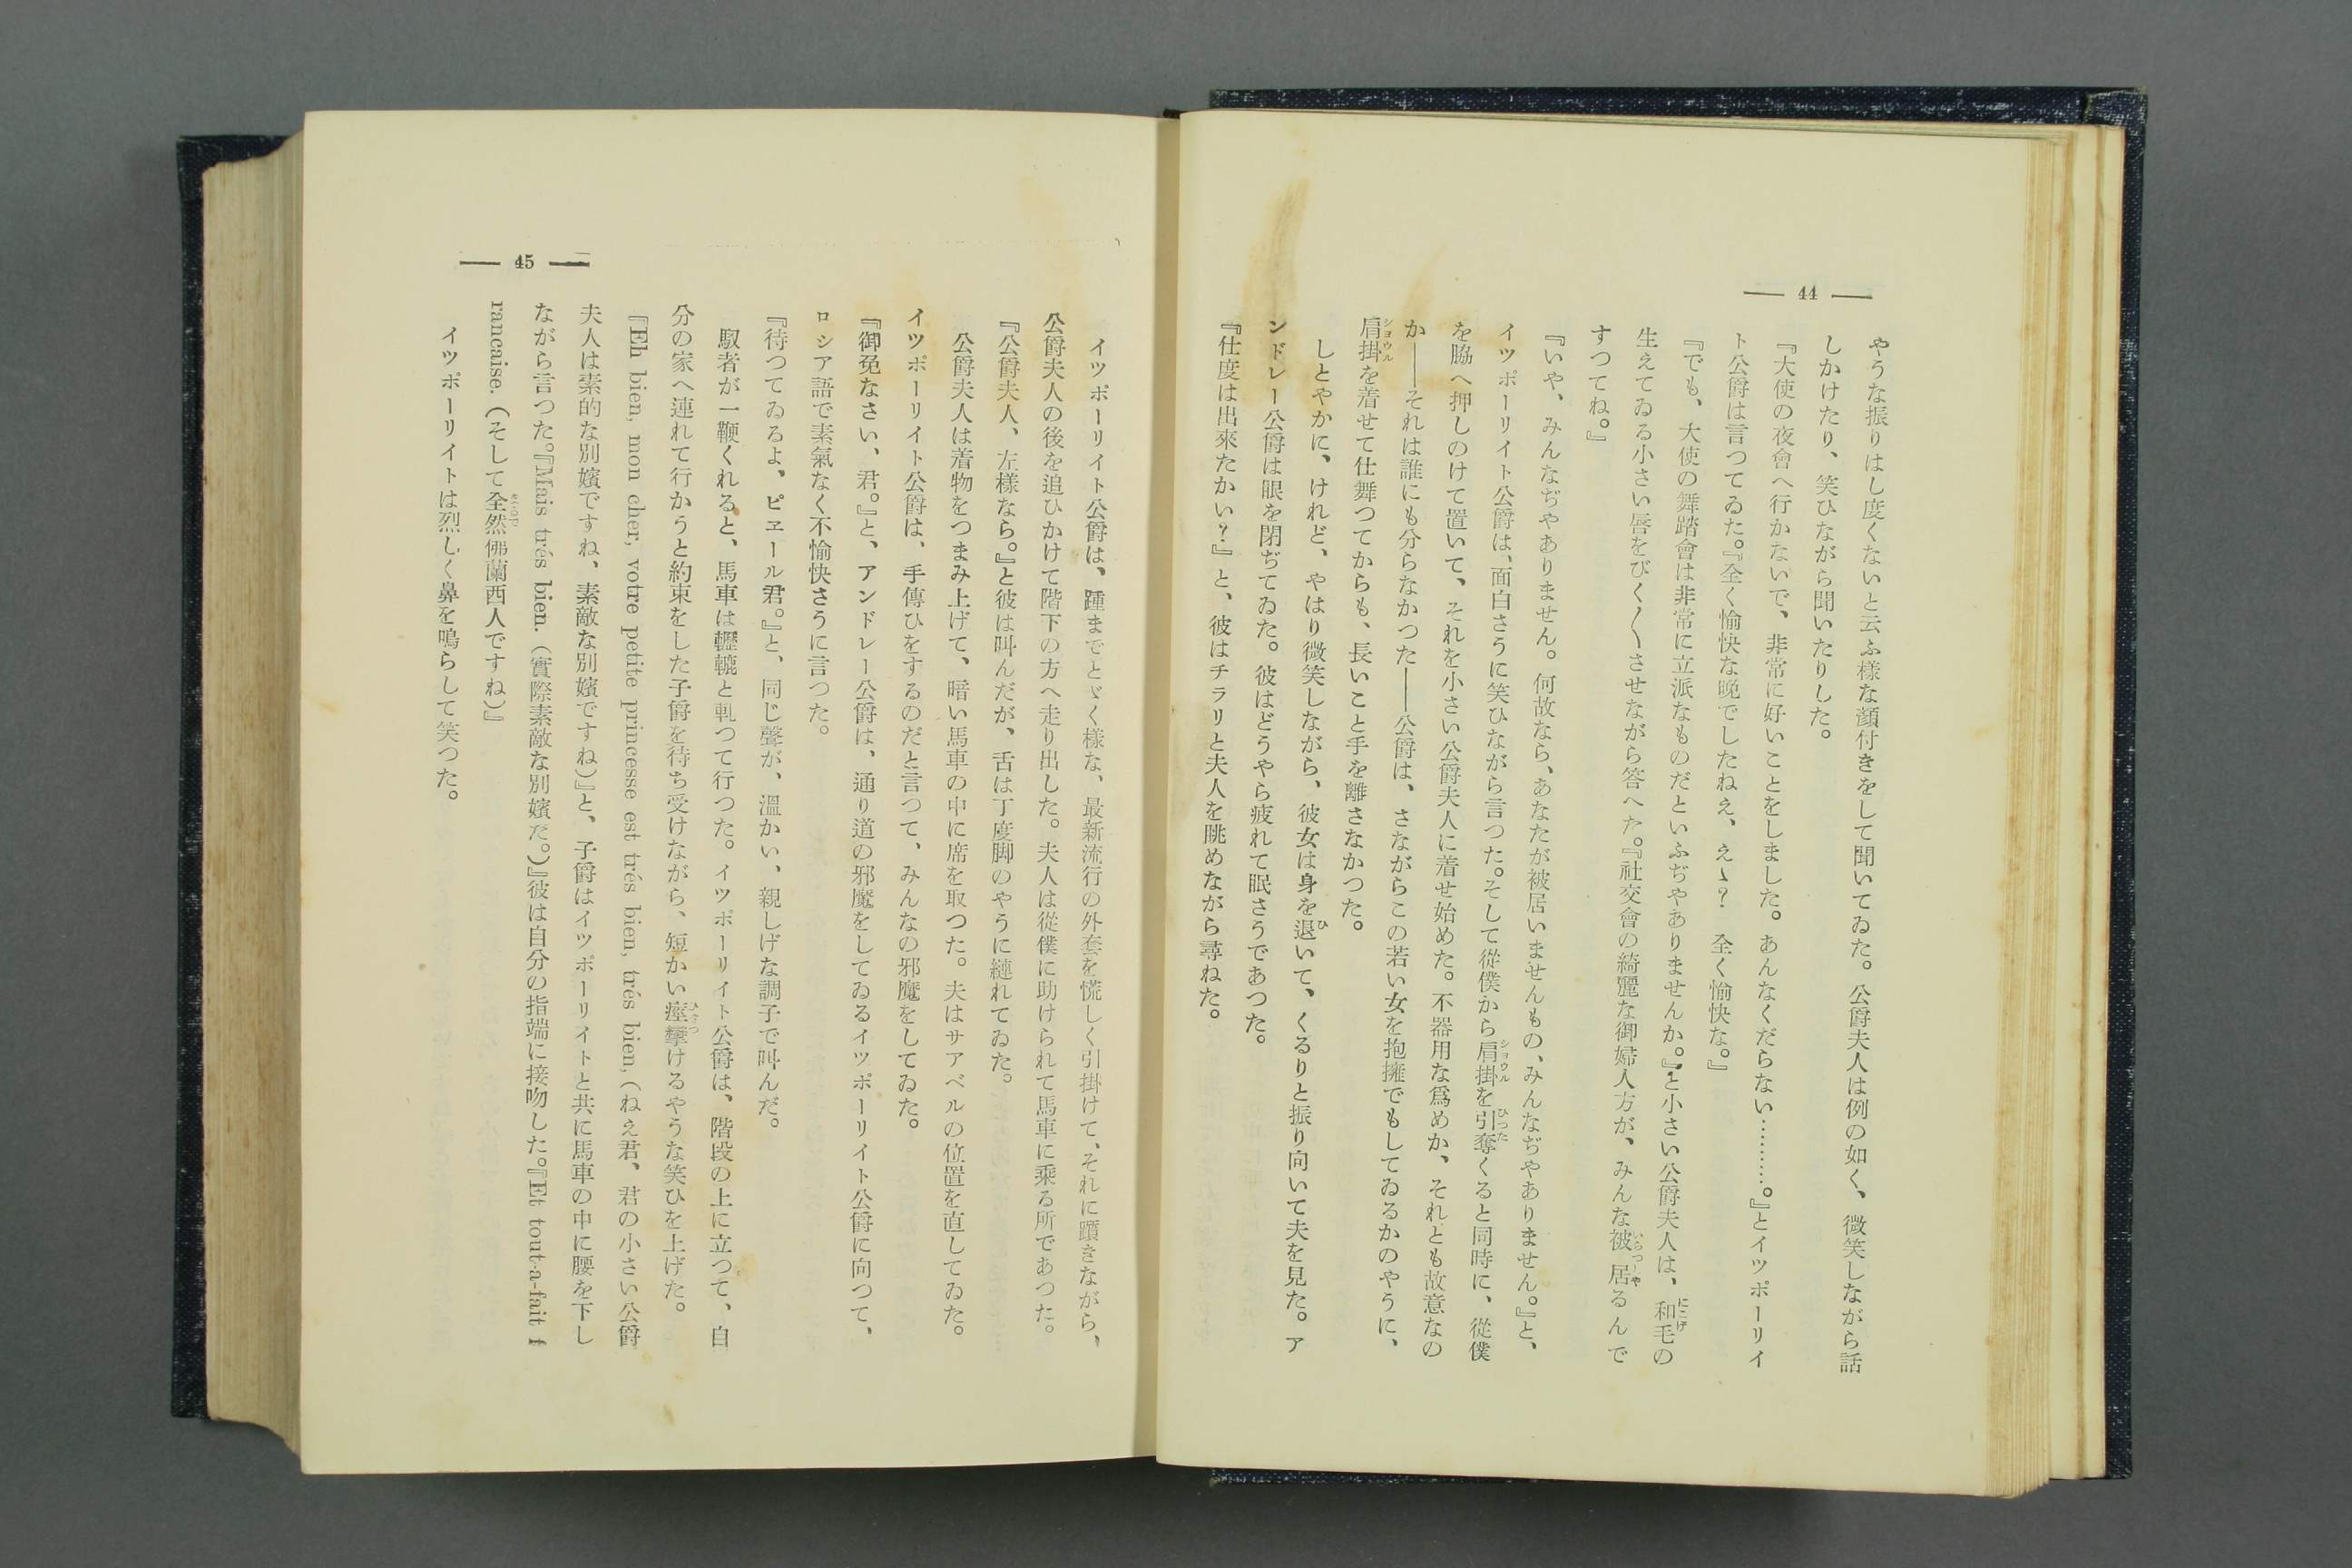 — 44 —
やうな振りはし度くないと云ふ樣な顏付きをして聞いてゐた。公爵夫人は例の如く、微笑しながら話
しかけたり、笑ひながら聞いたりした。
『大使の夜會へ行かないで、非常に好いことをしました。あんなくだらない………。』とイツポーリイ
ト公爵は言つてゐた。『全く愉快な晩でしたねえ、えゝ？　全く愉快な。』
『でも、大使の舞踏會は非常に立派なものだといふぢやありませんか。』と小さい公爵夫人は、和毛の
生えてゐる小さい唇をびく〳〵させながら答へた。『社交會の綺麗な御婦人方が、みんな被居るんで
すつてね。』
『いや、みんなぢやありません。何故なら、あなたが被居いませんもの、みんなぢやありません。』と、
イツポーリイト公爵は、面白さうに笑ひながら言つた。そして從僕から肩掛を引奪くると同時に、從僕
を脇へ押しのけて置いて、それを小さい公爵夫人に着せ始めた。不器用な爲めか、それとも故意なの
か――それは誰にも分らなかつた――公爵は、さながらこの若い女を抱擁でもしてゐるかのやうに、
肩掛を着せて仕舞つてからも、長いこと手を離さなかつた。
しとやかに、けれど、やはり微笑しながら、彼女は身を退いて、くるりと振り向いて夫を見た。ア
ンドレー公爵は眼を閉ぢてゐた。彼はどうやら疲れて眠さうであつた。
『仕度は出來たかい？』と、彼はチラリと夫人を眺めながら尋ねた。
— 45 —
イツポーリイト公爵は、踵までとゞく樣な、最新流行の外套を慌しく引掛けて、それに躓きながら、
公爵夫人の後を追ひかけて階下の方へ走り出した。夫人は從僕に助けられて馬車に乘る所であつた。
『公爵夫人、左樣なら。』と彼は叫んだが、舌は丁度脚のやうに縺れてゐた。
公爵夫人は着物をつまみ上げて、暗い馬車の中に席を取つた。夫はサアベルの位置を直してゐた。
イツポーリイト公爵は、手傳ひをするのだと言つて、みんなの邪魔をしてゐた。
『御免なさい、君。』と、アンドレー公爵は、通り道の邪魔をしてゐるイツポーリイト公爵に向つて、
ロシア語で素氣なく不愉快さうに言つた。
『待つてゐるよ、ピエール君。』と、同じ聲が、溫かい、親しげな調子で叫んだ。
馭者が一鞭くれると、馬車は轣轆と軋つて行つた。イツポーリイト公爵は、階段の上に立つて、自
分の家へ連れて行かうと約束をした子爵を待ち受けながら、短かい痙攣けるやうな笑ひを上げた。
『Eh bien, mon cher, votre petite princesse est trés bien, trés bien,（ねえ君、君の小さい公爵
夫人は素的な別嬪ですね、素敵な別嬪ですね）』と、子爵はイツポーリイトと共に馬車の中に腰を下し
ながら言つた。『Mais trés bien.（實際素敵な別嬪だ。）』彼は自分の指端に接吻した。『Et tout-a-fait f
rancaise.（そして全然佛蘭西人ですね）』
イツポーリイトは烈しく鼻を鳴らして笑つた。